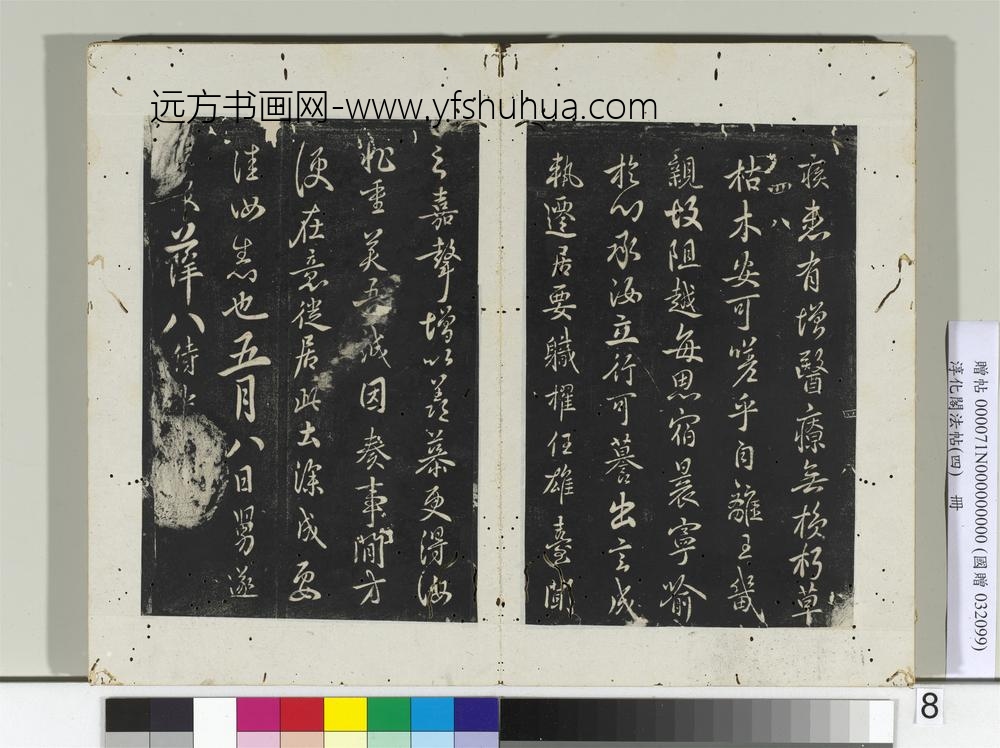 远方书画网-www.yfshuhua.com
疾患有增醫療無損朽草
四八
枯木安可嗟乎自離王畿
親故阻越每思宿晨寧喻
於心承汝立行可謩出言成
執遷居要職擢任雄臺聞
之嘉聲增以羨慕更得汝
非重美吾哉因奏事間方
便在意徙居此土深成要
佳汝悉也五月八日舅遂
良薛八侍中
贈帖 000071N000000000 (國贈 032099)
淳化閣法帖(四) 冊
8